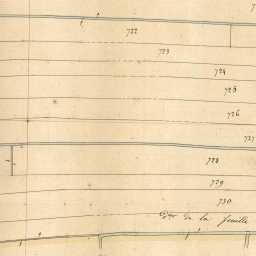 722
723
724
725
726
727
728
729
730
de la feuille